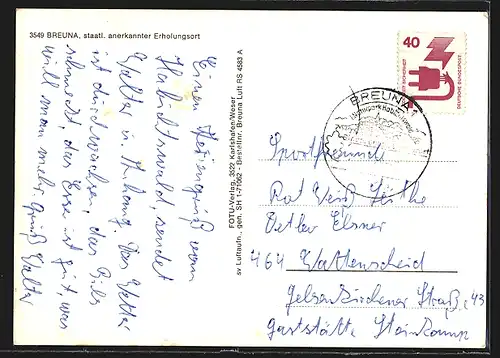 3549 BREUNA, staatl. anerkannter Erholungsort
Einen Feriengruß vom
Habichtswald, sendet
Walter u. Anhang. Das Wetter
ist durchwachsen, das Bils
schmeckt, das Essen ist gut, was
will man mehr. Gruß Walter
FOTU-Verlag, 3522 Karlshafen/Weser
sv Luftaufn., gen. SH 1-71062 - Bestellnr. Breuna Luft RS 4583 A
40
DEUTSCHE BUNDESPOST
BREUNA
Sportfreunde
Rot Weiß Leithe
Detlev Elsner
464 Wattenscheid
Gelsenkirchener Straße 43
Gaststätte Steinkamp